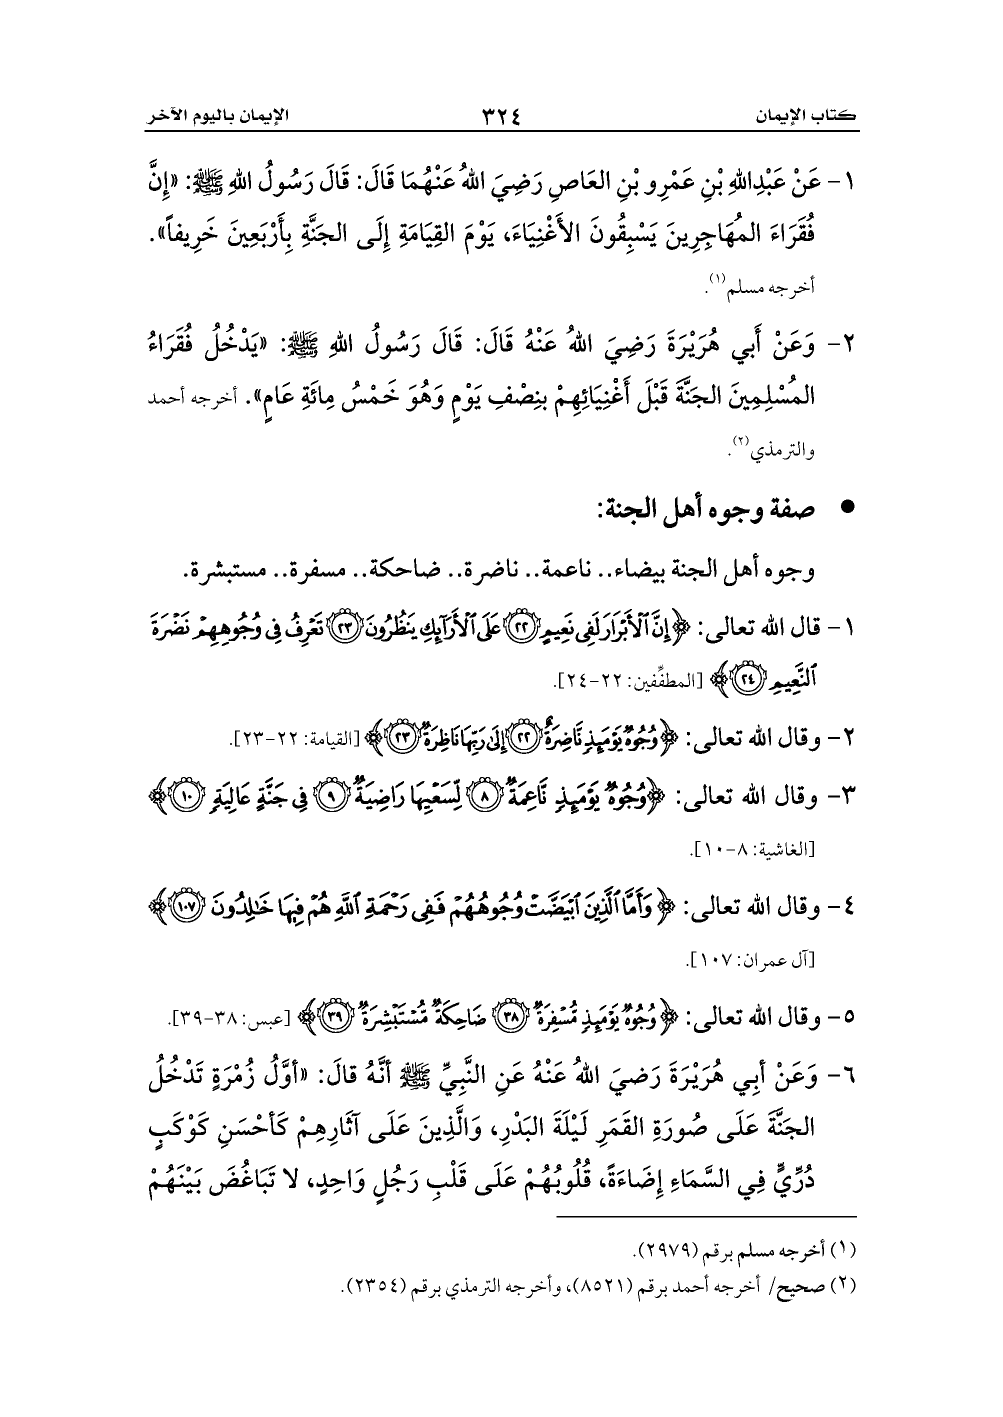 كتاب الإيمان ٣٢٤ الإيمان باليوم الآخر
١- عَنْ عَبْدِاللهِ بْنِ عَمْرِو بْنِ العَاصِ رَضِيَ اللهُ عَنْهُمَا قَالَ: قَالَ رَسُولُ اللهِ ﷺ: «إِنَّ
فُقَرَاءَ المُهَاجِرِينَ يَسْبِقُونَ الأَغْنِيَاءَ، يَوْمَ القِيَامَةِ إِلَى الجَنَّةِ بِأَرْبَعِينَ خَرِيفاً».
أخرجه مسلم(١).
٢- وَعَنْ أَبي هُرَيْرَةَ رَضِيَ اللهُ عَنْهُ قَالَ: قَالَ رَسُولُ اللهِ ﷺ: «يَدْخُلُ فُقَرَاءُ
المُسْلِمِينَ الجَنَّةَ قَبْلَ أَغْنِيَائِهِمْ بنِصْفِ يَوْمٍ وَهُوَ خَمْسُ مِائَةِ عَامٍ». أخرجه أحمد
والترمذي(٢).
• صفة وجوه أهل الجنة:
وجوه أهل الجنة بيضاء.. ناعمة.. ناضرة.. ضاحكة.. مسفرة.. مستبشرة.
١- قال الله تعالى: ﴿إِنَّ ٱلْأَبْرَارَ لَفِى نَعِيمٍ ﴿٢٢﴾ عَلَى ٱلْأَرَآئِكِ يَنظُرُونَ ﴿٢٣﴾ تَعْرِفُ فِى وُجُوهِهِمْ نَضْرَةَ
ٱلنَّعِيمِ ﴿٢٤﴾﴾ [المطفِّفين: ٢٢-٢٤].
٢- وقال الله تعالى: ﴿وُجُوهٌ يَوْمَئِذٍ نَّاضِرَةٌ ﴿٢٢﴾ إِلَىٰ رَبِّهَا نَاظِرَةٌ ﴿٢٣﴾﴾ [القيامة: ٢٢-٢٣].
٣- وقال الله تعالى: ﴿وُجُوهٌ يَوْمَئِذٍ نَّاعِمَةٌ ﴿٨﴾ لِّسَعْيِهَا رَاضِيَةٌ ﴿٩﴾ فِى جَنَّةٍ عَالِيَةٍ ﴿١٠﴾﴾
[الغاشية: ٨-١٠].
٤- وقال الله تعالى: ﴿وَأَمَّا ٱلَّذِينَ ٱبْيَضَّتْ وُجُوهُهُمْ فَفِى رَحْمَةِ ٱللَّهِ هُمْ فِيهَا خَٰلِدُونَ ﴿١٠٧﴾﴾
[آل عمران: ١٠٧].
٥- وقال الله تعالى: ﴿وُجُوهٌ يَوْمَئِذٍ مُّسْفِرَةٌ ﴿٣٨﴾ ضَاحِكَةٌ مُّسْتَبْشِرَةٌ ﴿٣٩﴾﴾ [عبس: ٣٨-٣٩].
٦- وَعَنْ أَبِي هُرَيْرَةَ رَضيَ اللهُ عَنْهُ عَنِ النَّبِيِّ ﷺ أنَّهُ قالَ: «أوَّلُ زُمْرَةٍ تَدْخُلُ
الجَنَّةَ عَلَى صُورَةِ القَمَرِ لَيْلَةَ البَدْرِ، وَالَّذِينَ عَلَى آثَارِهِمْ كَأحْسَنِ كَوْكَبٍ
دُرِّيٍّ فِي السَّمَاءِ إِضَاءَةً، قُلُوبُهُمْ عَلَى قَلْبِ رَجُلٍ وَاحِدٍ، لا تَبَاغُضَ بَيْنَهُمْ
(١) أخرجه مسلم برقم (٢٩٧٩).
(٢) صحيح/ أخرجه أحمد برقم (٨٥٢١)، وأخرجه الترمذي برقم (٢٣٥٤).